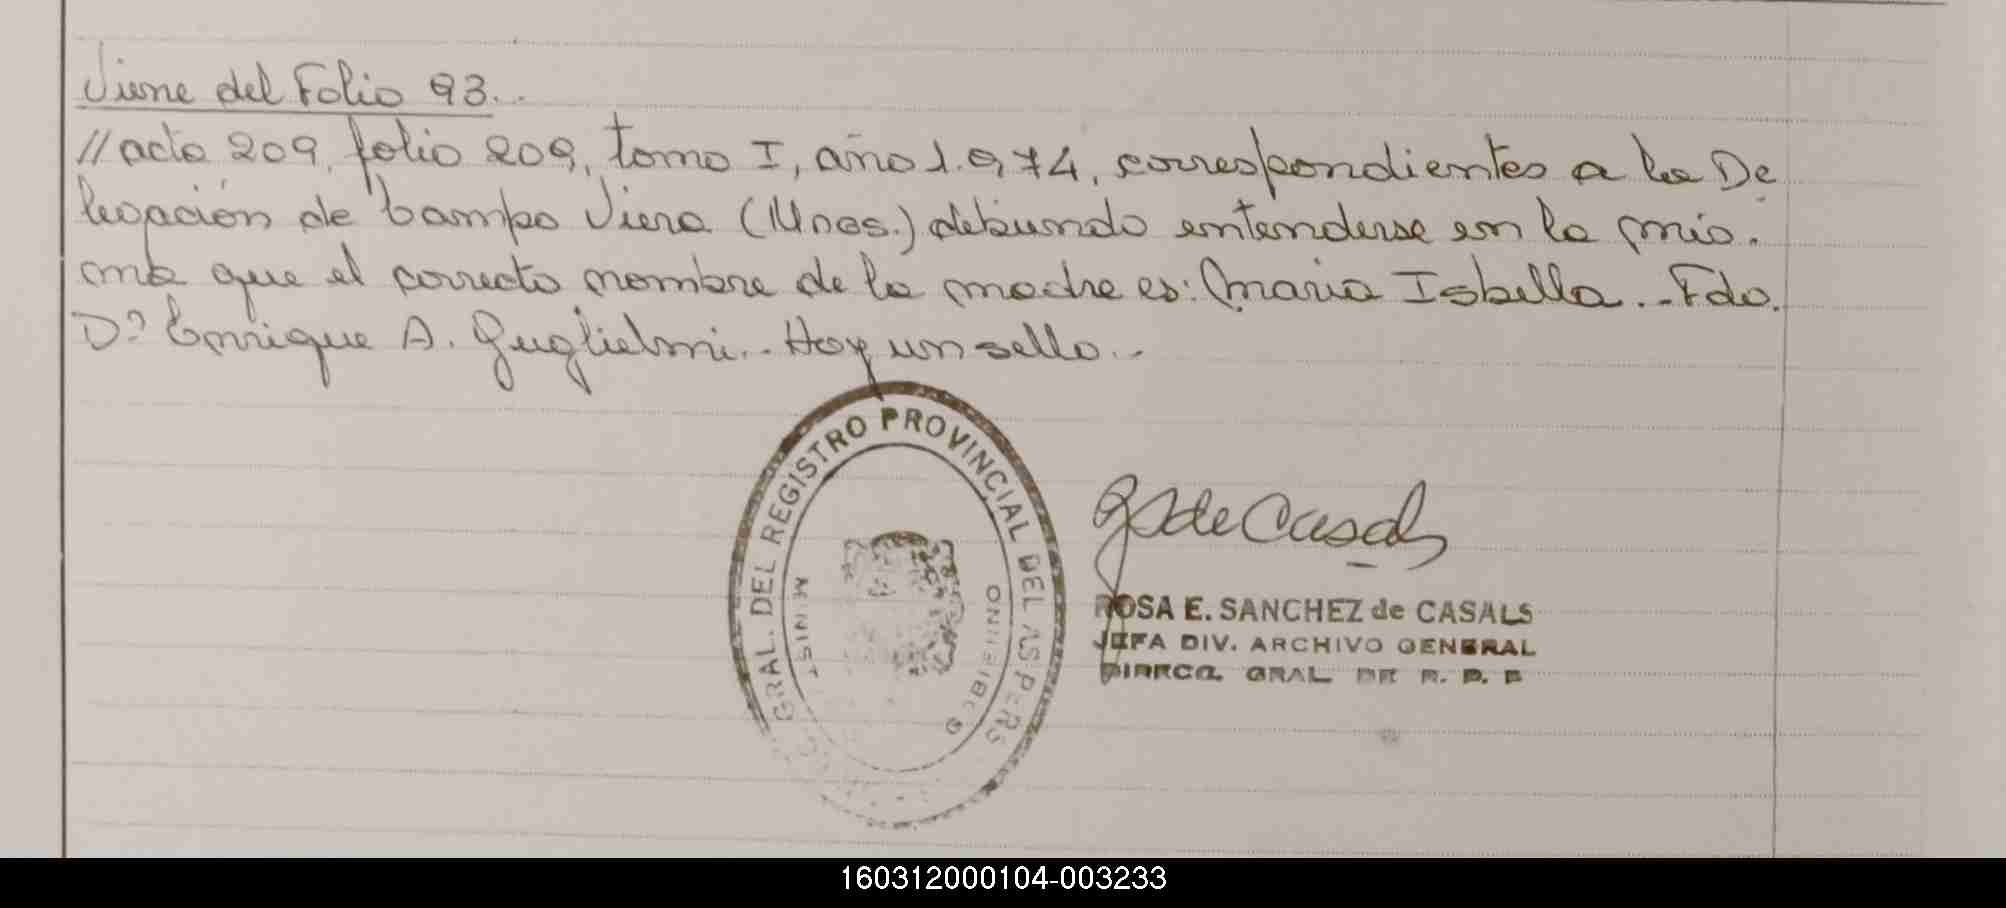 Viene del Folio 93...
//acta 209, folio 209, tomo I, año 1.974, correspondientes a la De
legación de Campo Viera (Mnes.) debiendo entenderse en la mis.
ma que el correcto nombre de la madre es: Maria Isbella..- Fdo.
Dr Enrique A. Guglielmi..- Hay un sello..-
GRAL. DEL REGISTRO PROVINCIAL DE LAS PERS
MINIST
GOBIERNO
RSdeCasals
ROSA E. SANCHEZ de CASALS
JEFA DIV. ARCHIVO GENERAL
DIRECC. GRAL DE R. P. P
160312000104-003233